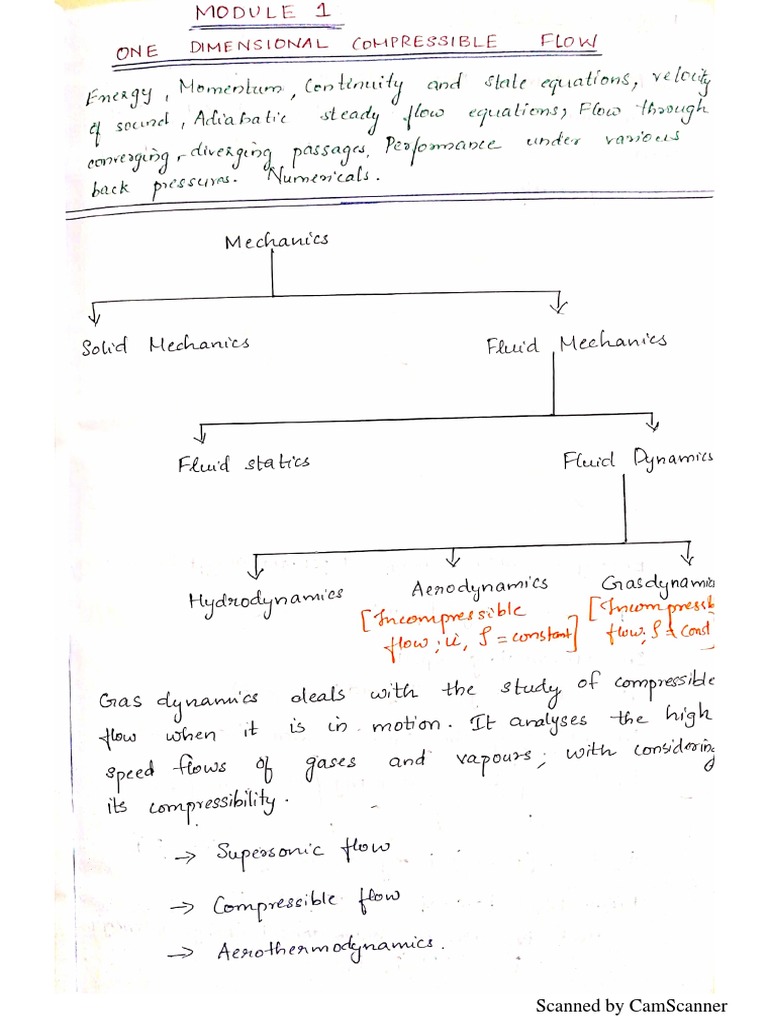 MODULE 1
ONE DIMENSIONAL COMPRESSIBLE FLOW
Energy, Momentum, Continuity and state equations, velocity
of sound, Adiabatic steady flow equations, Flow through
converging, diverging passages, Performance under various
back pressures. Numericals.
Mechanics
Solid Mechanics Fluid Mechanics
Fluid statics Fluid Dynamics
Hydrodynamics Aerodynamics Gasdynamic
[Incompressible [Incompressib
flow; ie, ρ = constant] flow; ρ ≠ Const
Gas dynamics deals with the study of compressible
flow when it is in motion. It analyses the high
speed flows of gases and vapours; with considering
its compressibility.
→ Supersonic flow
→ Compressible flow
→ Aerothermodynamics.
Scanned by CamScanner